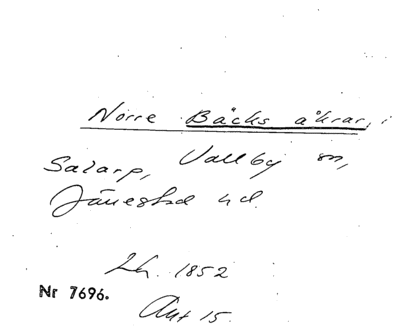 Norre Bäcks åkrar, i
Salarp, Vallby sn,
Järrestad hd.
Lh. 1852
Nr 7696.
Akt 15.